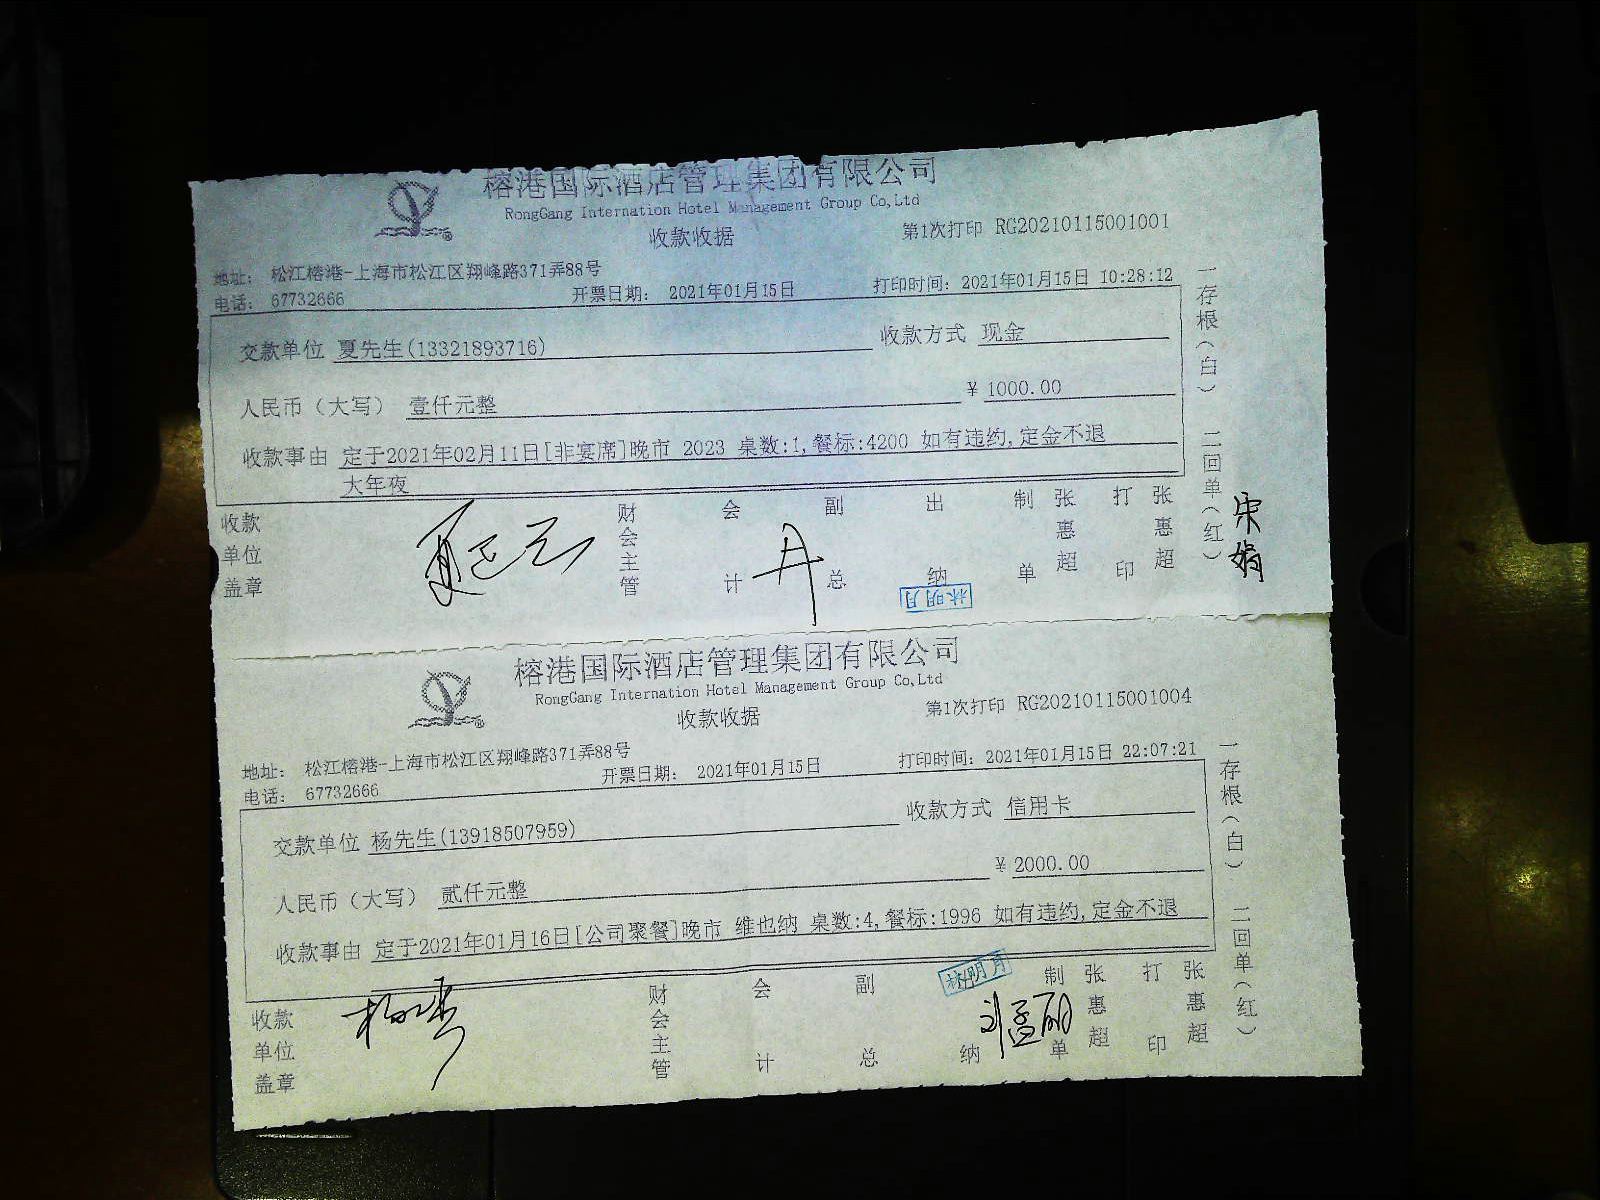 榕港国际酒店管理集团有限公司
RongGang Internation Hotel Management Group Co,Ltd
收款收据
第1次打印 RG20210115001001
地址: 松江榕港-上海市松江区翔峰路371弄88号
电话: 67732666 开票日期: 2021年01月15日 打印时间: 2021年01月15日 10:28:12
交款单位 夏先生(13321893716) 收款方式 现金
人民币（大写） 壹仟元整 ¥ 1000.00
收款事由 定于2021年02月11日[非宴席]晚市 2023 桌数:1,餐标:4200 如有违约,定金不退
大年夜
收款单位盖章 财会主管 会计 副总 出纳 制单 张惠超 打印 张惠超
林明月
一存根(白) 二回单(红)
宋娟
榕港国际酒店管理集团有限公司
RongGang Internation Hotel Management Group Co,Ltd
收款收据
第1次打印 RG20210115001004
地址: 松江榕港-上海市松江区翔峰路371弄88号
电话: 67732666 开票日期: 2021年01月15日 打印时间: 2021年01月15日 22:07:21
交款单位 杨先生(13918507959) 收款方式 信用卡
人民币（大写） 贰仟元整 ¥ 2000.00
收款事由 定于2021年01月16日[公司聚餐]晚市 维也纳 桌数:4,餐标:1996 如有违约,定金不退
收款单位盖章 财会主管 会计 副总 纳 制单 张惠超 打印 张惠超
林明月
刘孟丽
一存根(白) 二回单(红)